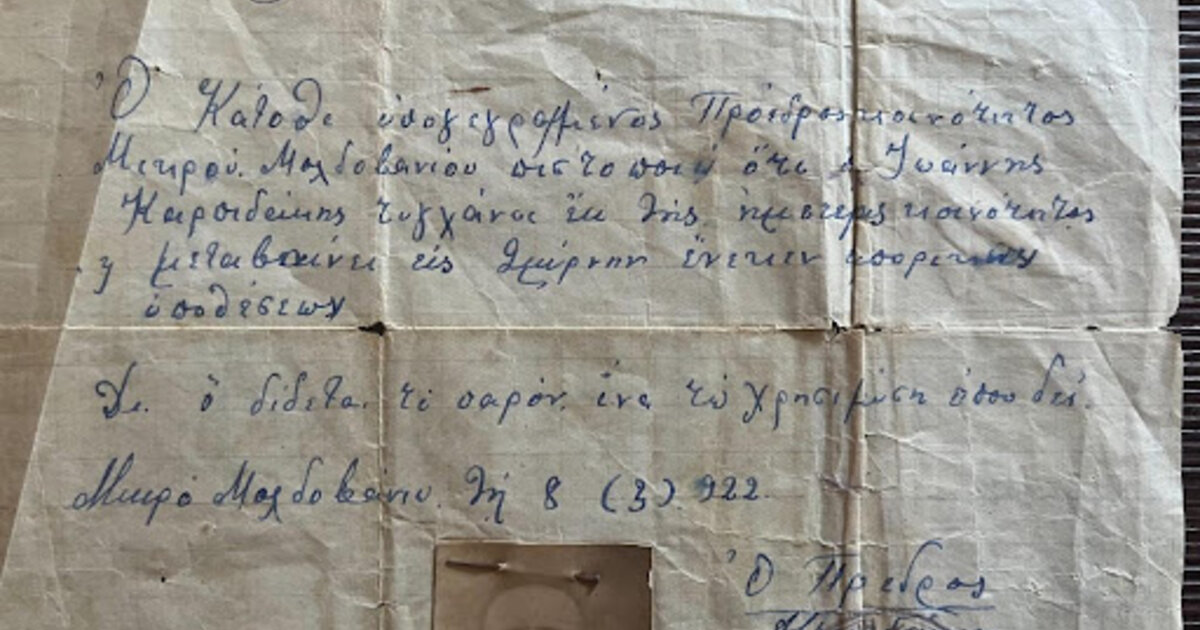 Ὁ Κάτοθι ὑπογεγραμμένος Πρόεδρος κοινότητος
Μικροῦ Μολδοβανίου πιστοποιῶ ὅτι ὁ Ἰωάννης
Καρσιδάκης τυγχάνει ἐκ τῆς ἡμετέρας κοινότητος
ἡ μεταβαίνει εἰς Σμύρνην ἕνεκεν ἐμπορικῆς
ὑποθέσεων
Δι ὅ δίδεται τὸ παρόν ἵνα τῷ χρησιμεύσῃ ὅπου δεῖ.
Μικρό Μολδοβάνιο τῇ 8 (3) 922
Ὁ Πρεδρος